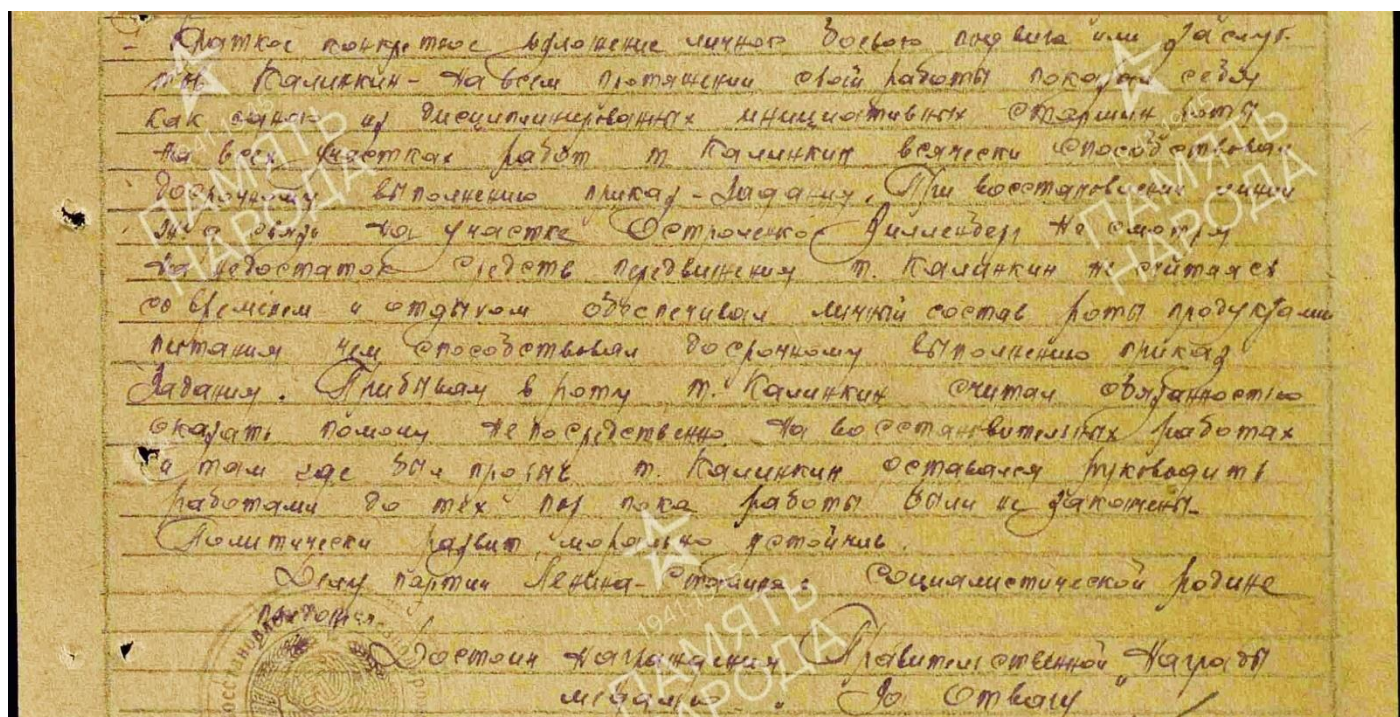 - Краткое конкретное изложение личного боевого подвига или заслуг
Калинкин - На всем протяжении свой работы показал себя
как одного из дисциплинированных инициативных старшин роты
На всех участках работ т Калинкин всячески способствовал
досрочному выполнению приказ-заданию. При восстановлении линии
связи на участке Остроленко Вилленберг не смотря
на недостаток средств передвижения т. Калинкин не считаясь
со временем и отдыхом обеспечивал личный состав роты продуктами
питания чем способствовал досрочному выполнению приказ
Задания. Прибывая в роту т. Калинкин считал обязанностью
оказать помощ непосредственно на восстановительных работах
и там где был прорыв т. Калинкин оставался руководить
работами до тех пор пока работы были не закончены.
Политически развит, морально устойчив.
Делу партии Ленина-Сталина и социалистической родине
предан
Достоин награждения Правительственной Награды
медалью "За Отвагу"
1941-1945
ПАМЯТЬ
НАРОДА
1941-1945
ПАМЯТЬ
НАРОДА
1941-1945
ПАМЯТЬ
НАРОДА